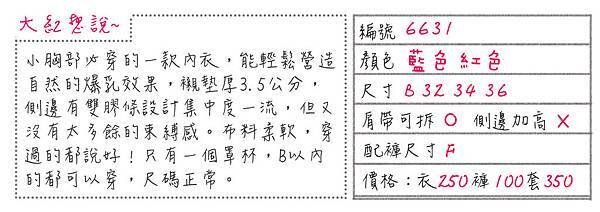 大紅想說~
小胸部必穿的一款內衣，能輕鬆營造
自然的爆乳效果，襯墊厚3.5公分，
側邊有雙膠條設計集中度一流，但又
沒有太多餘的束縛感。布料柔軟，穿
過的都說好！只有一個罩杯，B以內
的都可以穿，尺碼正常。
編號 6631
顏色 藍色 紅色
尺寸 B 32 34 36
肩帶可拆 O 側邊加高 X
配褲尺寸 F
價格：衣250褲100套350